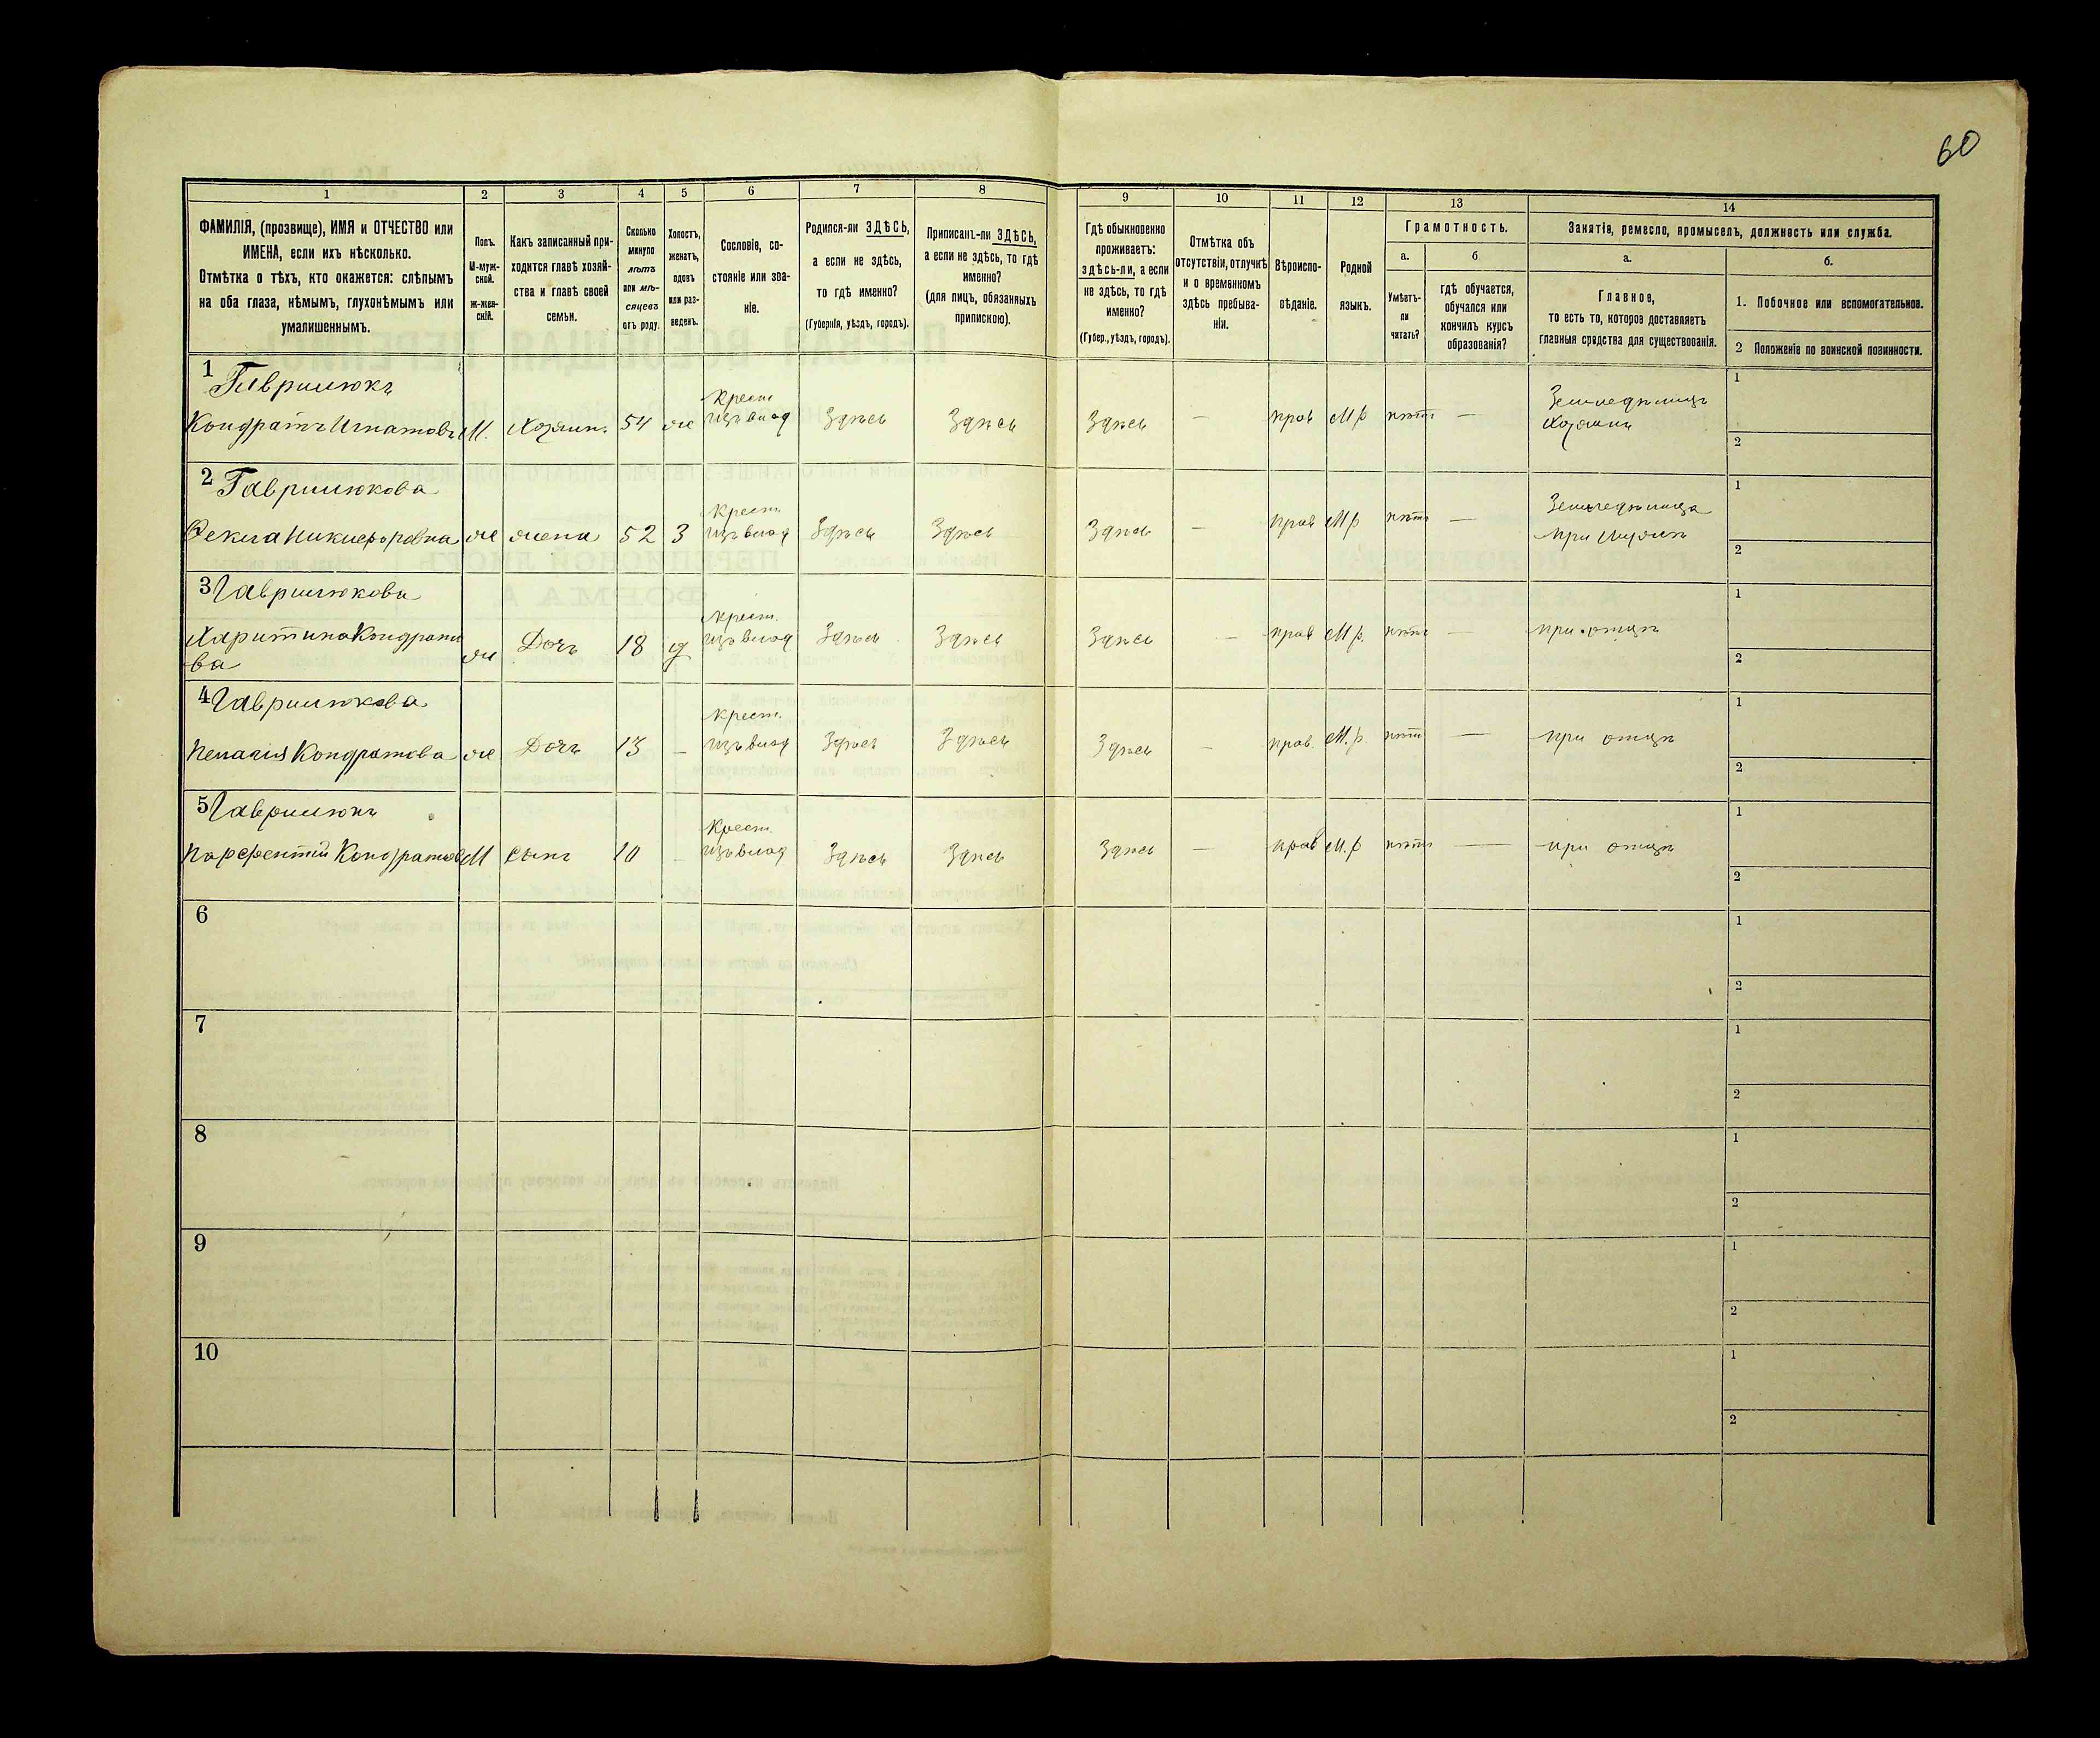 60
1 2 3 4 5 6 7 8 9 10 11 12 13 14
ФАМИЛІЯ, (прозвище), ИМЯ и ОТЧЕСТВО или
ИМЕНА, если ихъ нѣсколько.
Отмѣтка о тѣхъ, кто окажется: слѣпымъ
на оба глаза, нѣмымъ, глухонѣмымъ или
умалишеннымъ.
Полъ.
М-муж-
ской.
ж-жен-
скій.
Какъ записанный при-
ходится главѣ хозяй-
ства и главѣ своей
семьи.
Сколько
минуло
лѣтъ
или мѣ-
сяцевъ
отъ роду.
Холостъ,
женатъ,
вдовъ
или раз-
веденъ.
Сословіе, со-
стояніе или зва-
ніе.
Родился-ли ЗДѢСЬ,
а если не здѣсь,
то гдѣ именно?
(Губернія, уѣздъ, городъ).
Приписанъ-ли ЗДѢСЬ,
а если не здѣсь, то гдѣ
именно?
(для лицъ, обязанныхъ
припискою).
Гдѣ обыкновенно
проживаетъ:
здѣсь-ли, а если
не здѣсь, то гдѣ
именно?
(Губер., уѣздъ, городъ).
Отмѣтка объ
отсутствіи, отлучкѣ
и о временномъ
здѣсь пребыва-
ніи.
Вѣроиспо-
вѣданіе.
Родной
языкъ.
Грамотность.
а.
Умѣетъ-
ли
читать?
б
гдѣ обучается,
обучался или
кончилъ курсъ
образованія?
Занятія, ремесло, промыселъ, должность или служба.
а.
Главное,
то есть то, которое доставляетъ
главныя средства для существованія.
б.
1. Побочное или вспомогательное.
2 Положеніе по воинской повинности.
1 Гаврилюкъ
Кондратъ Игнатовъ М. Хозяин. 54 ж Крест. изъ влад Здѣсь Здѣсь Здѣсь — прав М.р нѣтъ — Земледѣлецъ
Хозяинъ
1
2
2 Гаврилюкова
Фекла Никифоровна ж жена 52 З Крест. изъ влад Здѣсь Здѣсь Здѣсь — прав М.р нѣтъ — Земледѣлица
при
1
2
3 Гаврилюкова
Харитина Кондрати
ва ж Дочь 18 д Крест. изъ влад Здѣсь Здѣсь Здѣсь — прав М.р. нѣтъ — при отцѣ
1
2
4 Гаврилюкова
Кондратова ж Дочь 13 — Крест. изъ влад Здѣсь Здѣсь Здѣсь — прав. М.р. нѣтъ — при отцѣ
1
2
5 Гаврилюкъ
Парфентій Кондратовъ М Сынъ 10 — Крест. изъ влад Здѣсь Здѣсь Здѣсь — прав М.р нѣтъ — при отцѣ
1
2
6
1
2
7
1
2
8
1
2
9
1
2
10
1
2